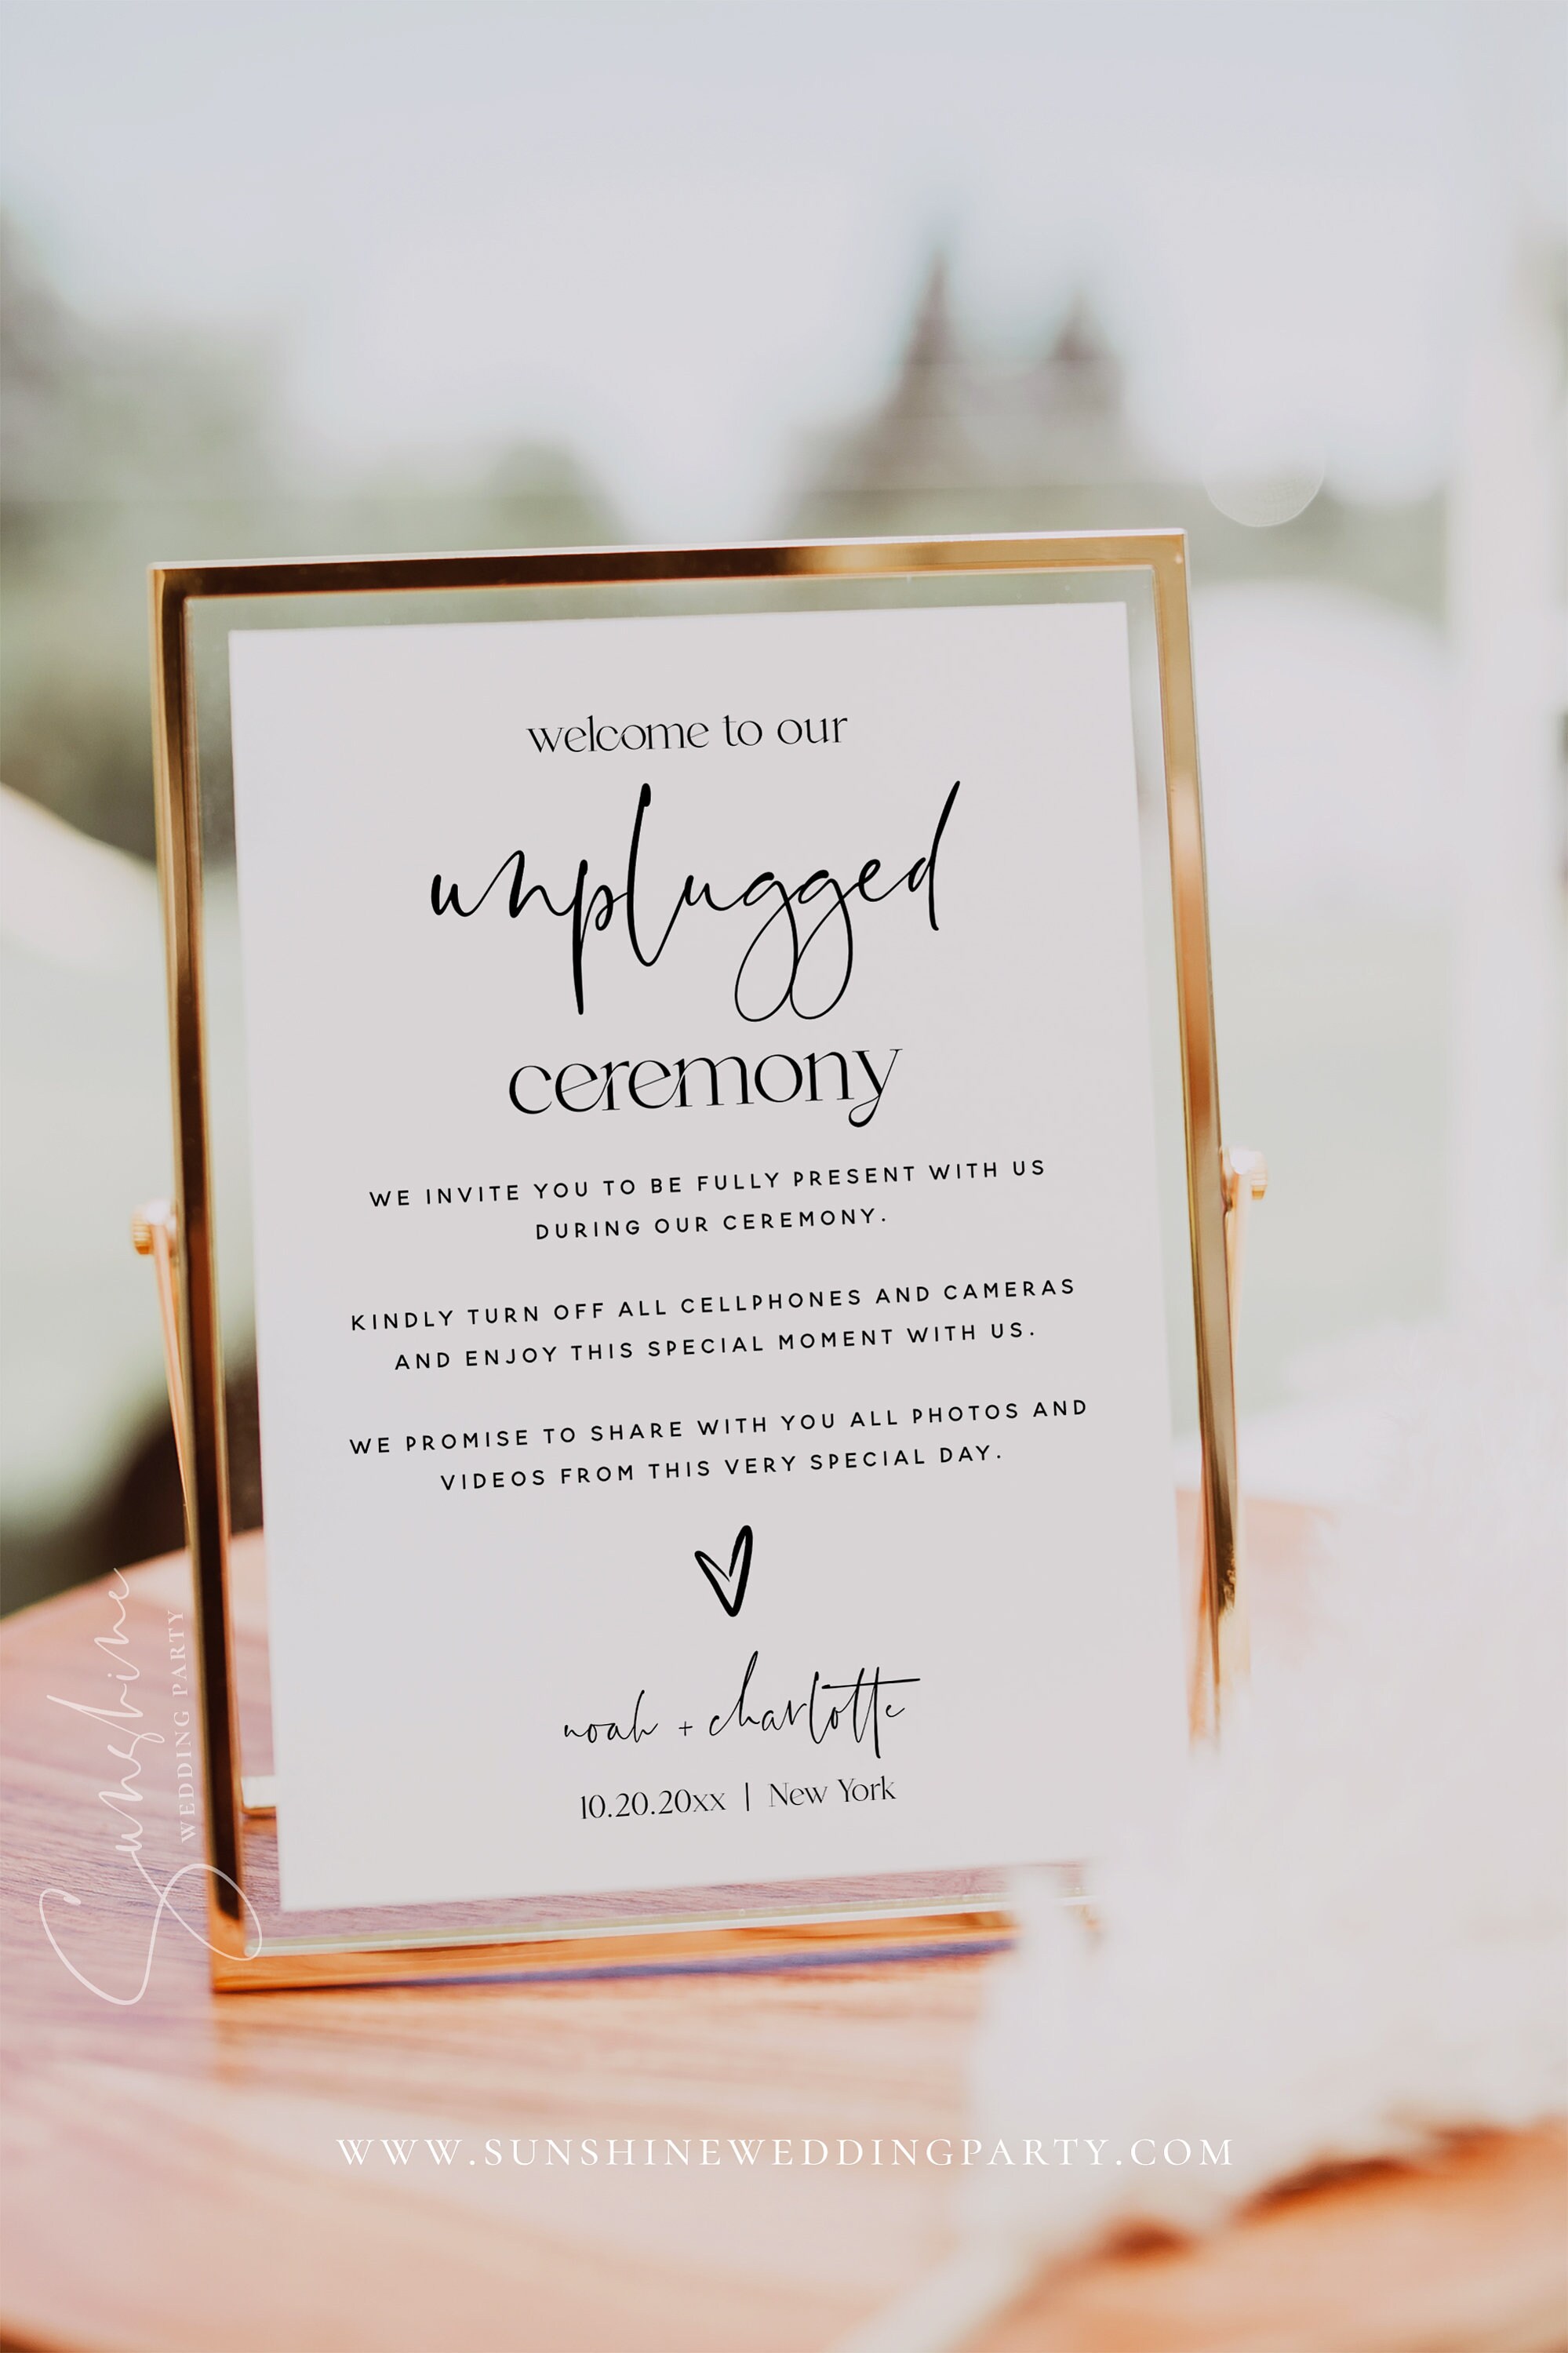 welcome to our
unplugged
ceremony
WE INVITE YOU TO BE FULLY PRESENT WITH US
DURING OUR CEREMONY.
KINDLY TURN OFF ALL CELLPHONES AND CAMERAS
AND ENJOY THIS SPECIAL MOMENT WITH US.
WE PROMISE TO SHARE WITH YOU ALL PHOTOS AND
VIDEOS FROM THIS VERY SPECIAL DAY.
noah + charlotte
10.20.20xx | New York
Sunshine
WEDDING PARTY
WWW.SUNSHINEWEDDINGPARTY.COM